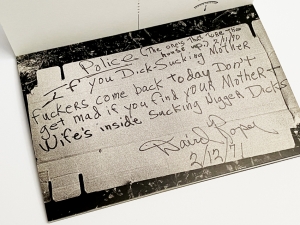 Police (The one's that tore the
house up.) 2/11/70
If you Dick Sucking Mother
fuckers come back today Don't
get mad if you find your Mother +
Wife's inside sucking Nigger Dicks
David
2/12/71